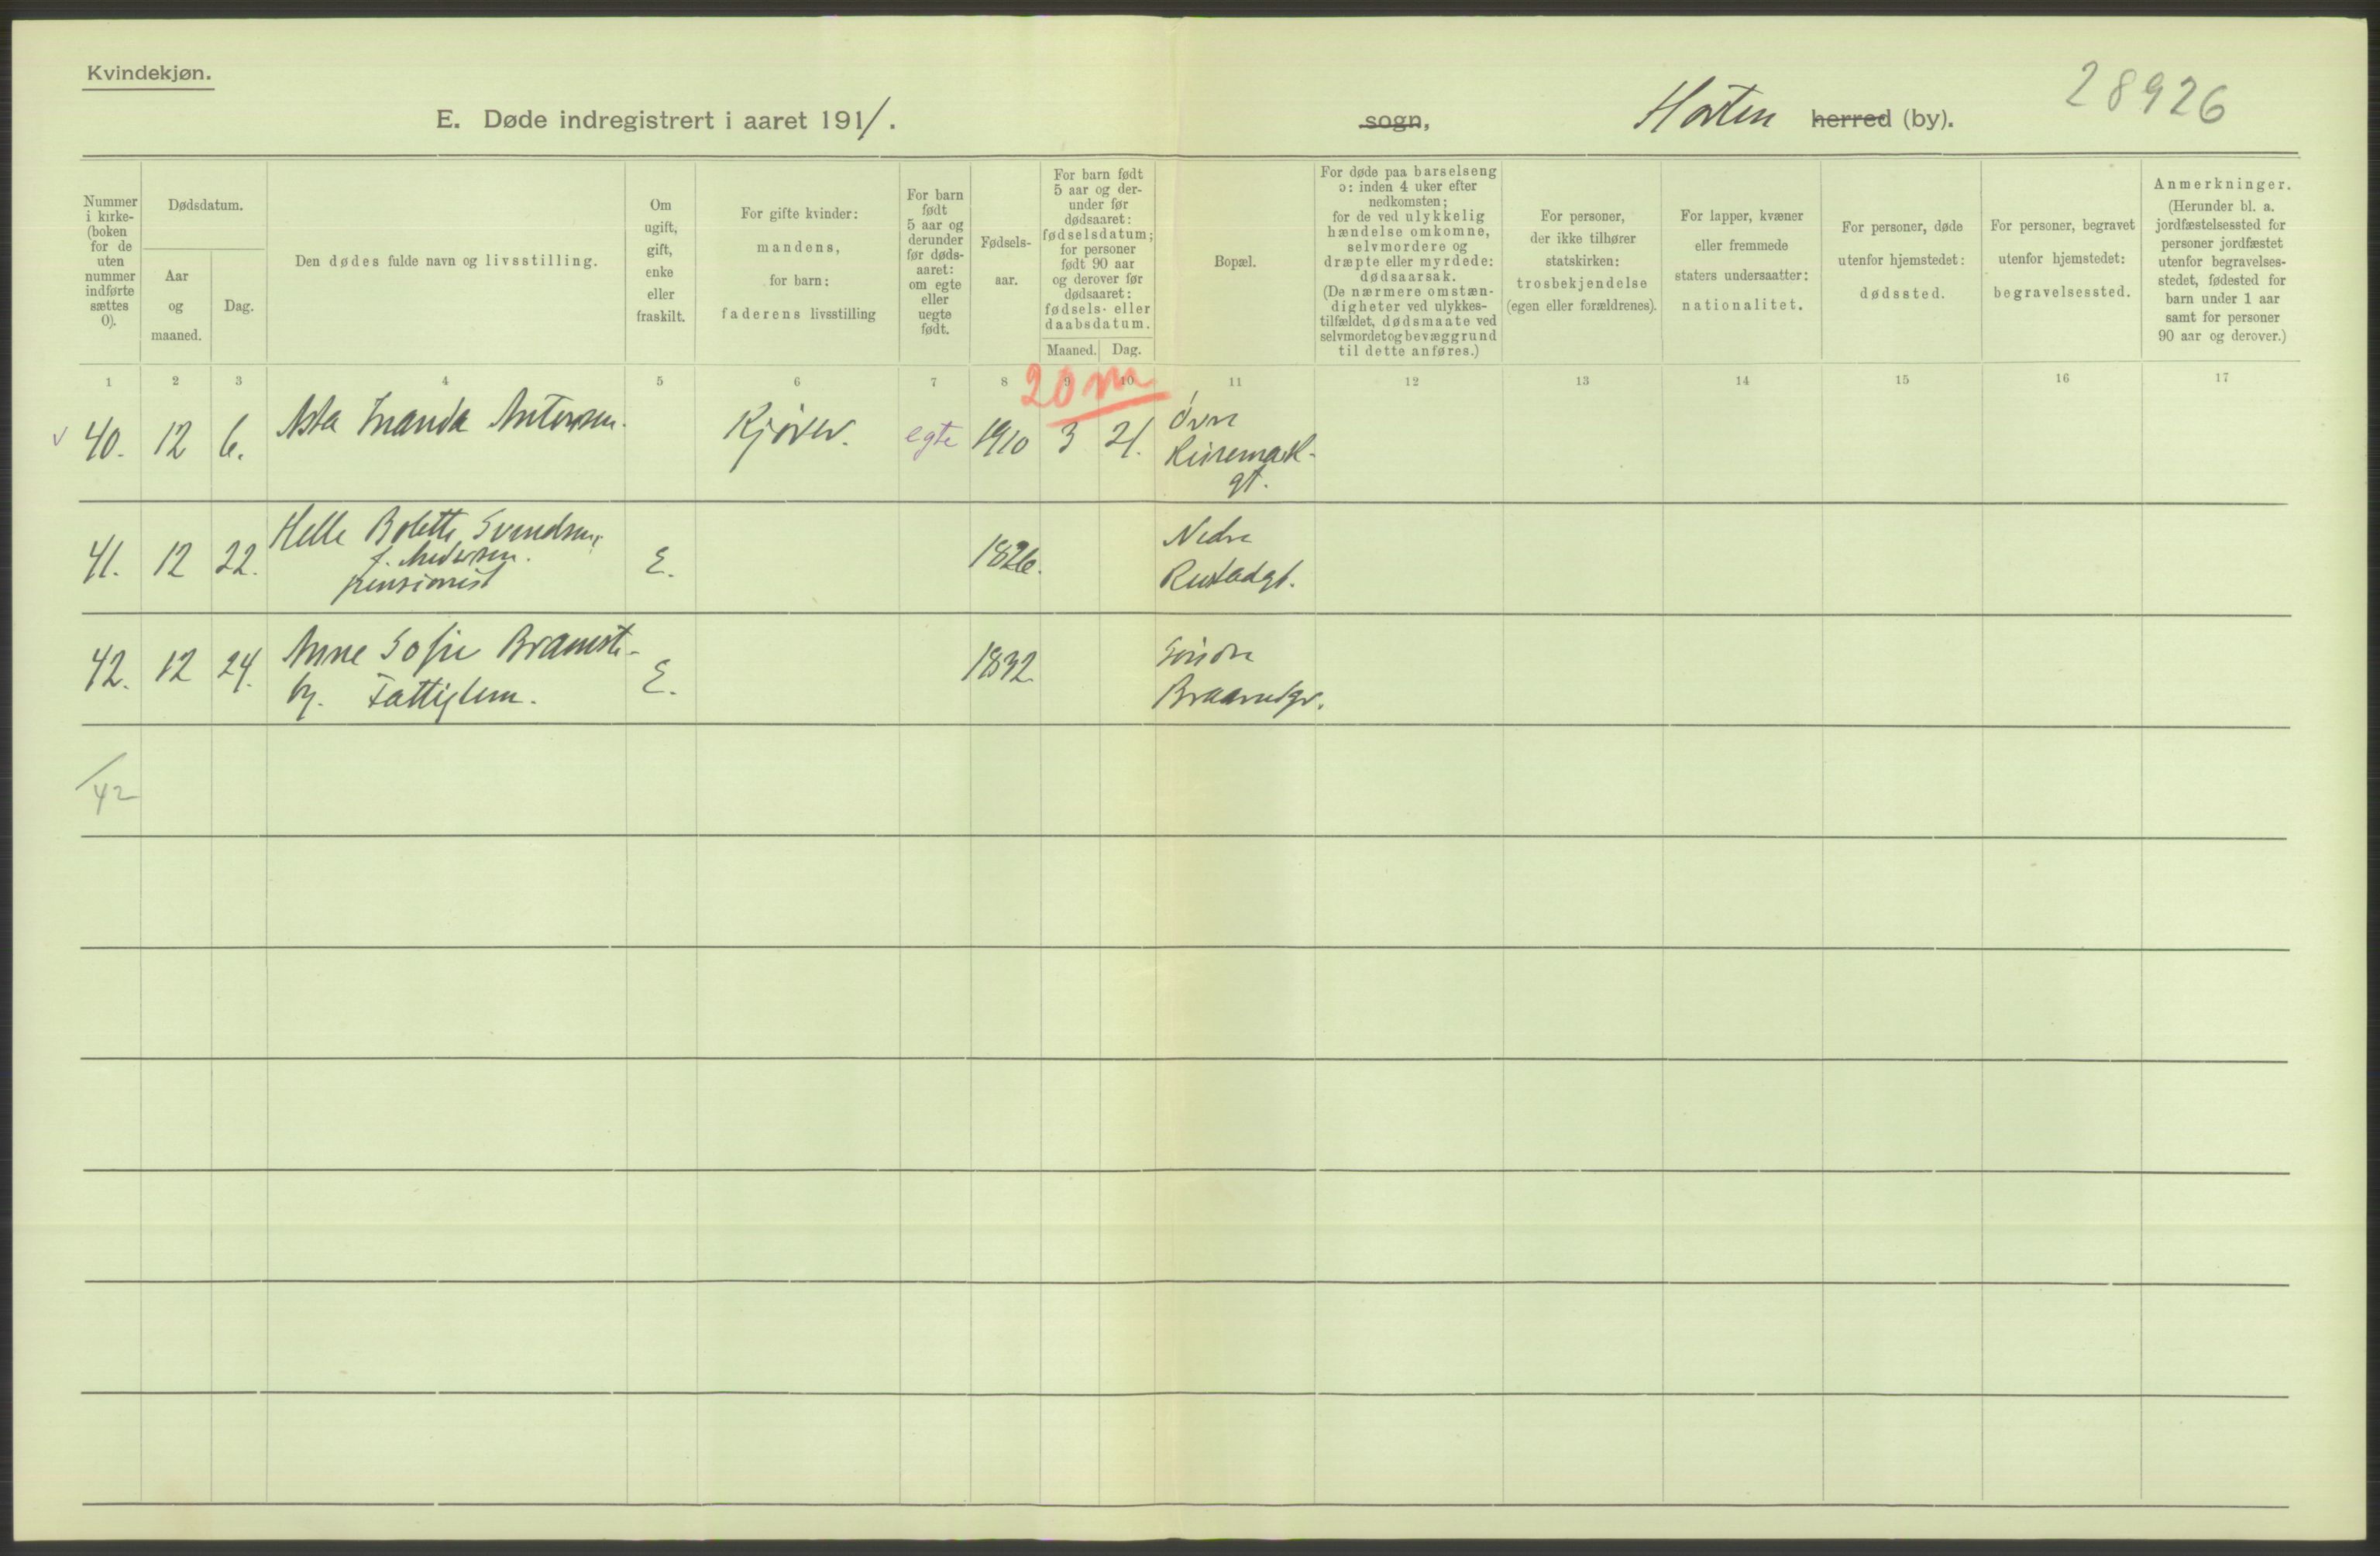 Kvindekjøn.
E. Døde indregistrert i aaret 1911.
sogn,
Horten herred (by).
28926
Nummer
i kirke-
(boken
for de
uten
nummer
indførte
sættes
0).
Dødsdatum.
Aar
og
maaned.
Dag.
Den dødes fulde navn og livsstilling.
Om
ugift,
gift,
enke
eller
fraskilt.
For gifte kvinder:
mandens,
for barn:
faderens livsstilling
For barn
født
5 aar og
derunder
før døds-
aaret:
om egte
eller
uegte
født.
Fødsels-
aar.
For barn født
5 aar og der-
under før
dødsaaret:
fødselsdatum;
for personer
født 90 aar
og derover før
dødsaaret:
fødsels- eller
daabsdatum.
Maaned.
Dag.
Bopæl.
For døde paa barselseng
ɔ: inden 4 uker efter
nedkomsten;
for de ved ulykkelig
hændelse omkomne,
selvmordere og
dræpte eller myrdede:
dødsaarsak.
(De nærmere omstæn-
digheter ved ulykkes-
tilfældet, dødsmaate ved
selvmordet og bevæggrund
til dette anføres.)
For personer,
der ikke tilhører
statskirken:
trosbekjendelse
(egen eller forældrenes).
For lapper, kvæner
eller fremmede
staters undersaatter:
nationalitet.
For personer, døde
utenfor hjemstedet:
dødssted.
For personer, begravet
utenfor hjemstedet:
begravelsessted.
Anmerkninger.
(Herunder bl. a.
jordfæstelsessted for
personer jordfæstet
utenfor begravelses-
stedet, fødested for
barn under 1 aar
samt for personer
90 aar og derover.)
1 2 3 4 5 6 7 8 9 10 11 12 13 14 15 16 17
20 m
v 40. 12 6. Asta Andersen. egte 1910 3 21. Øvre
gt.
41. 12 22. Helle Bolette Svendsen,
f. Andersen.
pensionist
E. 1826. Nedre
Rustadgt.
42. 12 24. Anne Sofie Bramste-
by. Fattiglem.
E. 1832. Søndre
Braarudgt.
/42